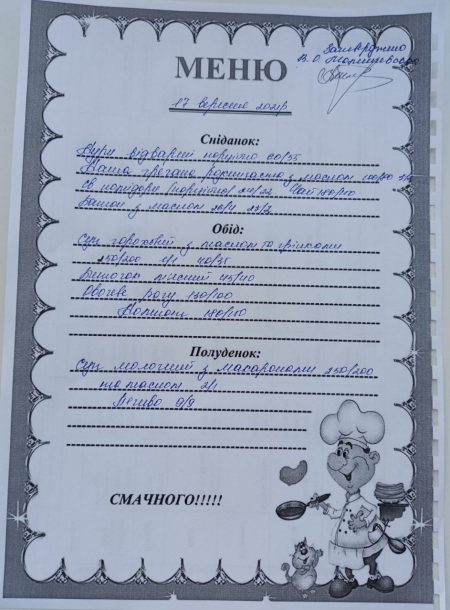 Затверджено
В.О.
МЕНЮ
17 вересня 2021р
Сніданок:
Кури відварні порційно 60/55
Каша гречана розсипчаста з маслом
св помідори (порційно) 24/22 Чай 180/150
Батон з маслом
Обід:
Суп гороховий з маслом та грінками
250/200 2/1 40/35
Бишочок м'ясний 45/40
Овочеве рагу 130/100
Компот 180/150
Полуденок:
Суп молочний з макаронами 250/200
та маслом 2/1
Печиво 9/9
СМАЧНОГО!!!!!